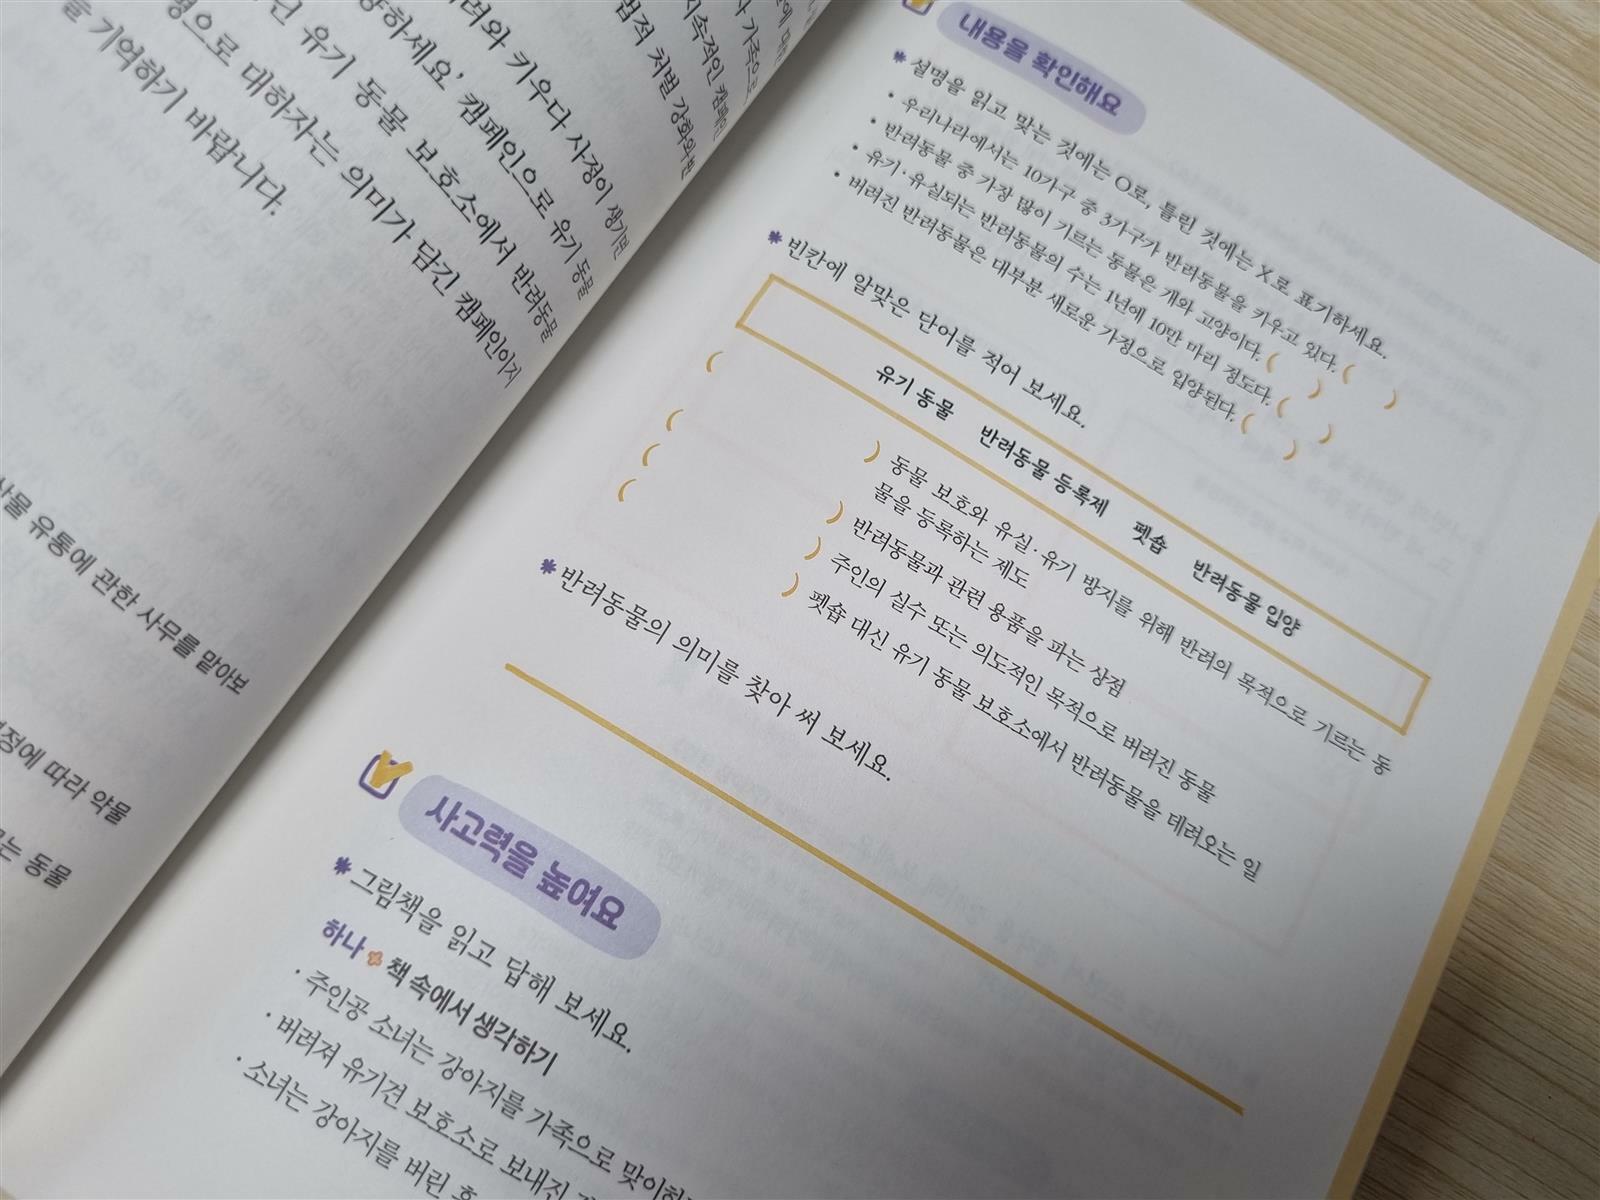 려와 키우다 사정이 생기면
양하세요’ 캠페인으로 유기 동물
유기 동물 보호소에서 반려동물
명으로 대하자는 의미가 담긴 캠페인이지
을 기억하기 바랍니다.
사 가족으로
지속적인 캠페인
법적 처벌 강화와 번
유통에 관한 사무를 맡아보
정에 따라 약물
는 동물
내용을 확인해요
설명을 읽고 맞는 것에는 O로, 틀린 것에는 X로 표기하세요.
· 우리나라에서는 10가구 중 3가구가 반려동물을 키우고 있다. ( )
· 반려동물 중 가장 많이 기르는 동물은 개와 고양이다. ( )
· 유기·유실되는 반려동물의 수는 1년에 10만 마리 정도다. ( )
· 버려진 반려동물은 대부분 새로운 가정으로 입양된다. ( )
빈칸에 알맞은 단어를 적어 보세요.
유기 동물 반려동물 등록제 펫숍 반려동물 입양
( ) 동물 보호와 유실·유기 방지를 위해 반려의 목적으로 기르는 동
물을 등록하는 제도
( ) 반려동물과 관련 용품을 파는 상점
( ) 주인의 실수 또는 의도적인 목적으로 버려진 동물
( ) 펫숍 대신 유기 동물 보호소에서 반려동물을 데려오는 일
반려동물의 의미를 찾아 써 보세요.
사고력을 높여요
그림책을 읽고 답해 보세요.
하나 책 속에서 생각하기
· 주인공 소녀는 강아지를 가족으로 맞이하
· 버려져 유기견 보호소로 보내진
· 소녀는 강아지를 버린 후